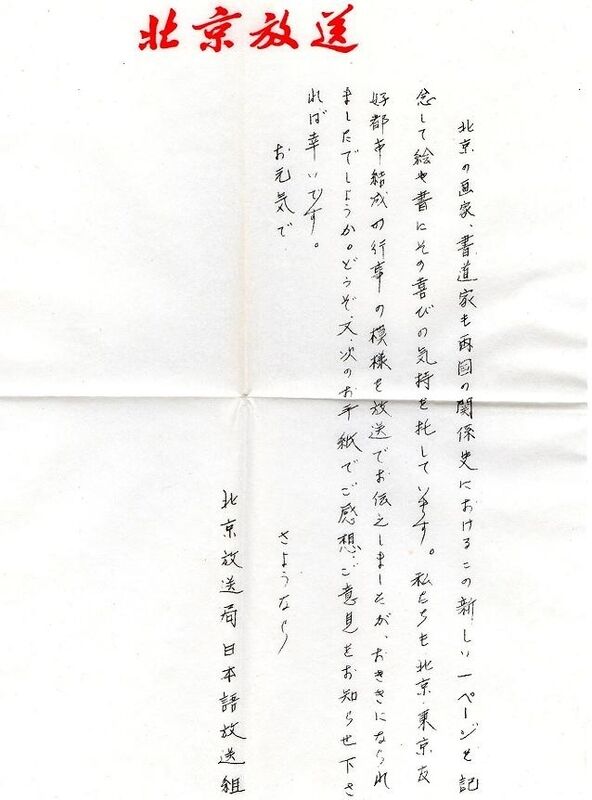 北京放送
北京の画家、書道家も両国の関係史におけるこの新しい一ページを記
念して絵や書にその喜びの気持を托しています。私たちも北京・東京友
好都市結成の行事の模様を放送でお伝えしましたが、おききになられ
ましたでしょうか。どうぞ、又、次のお手紙でご感想、ご意見をお知らせ下さ
れば幸いです。
お元気で
さようなら
北京放送局日本語放送組